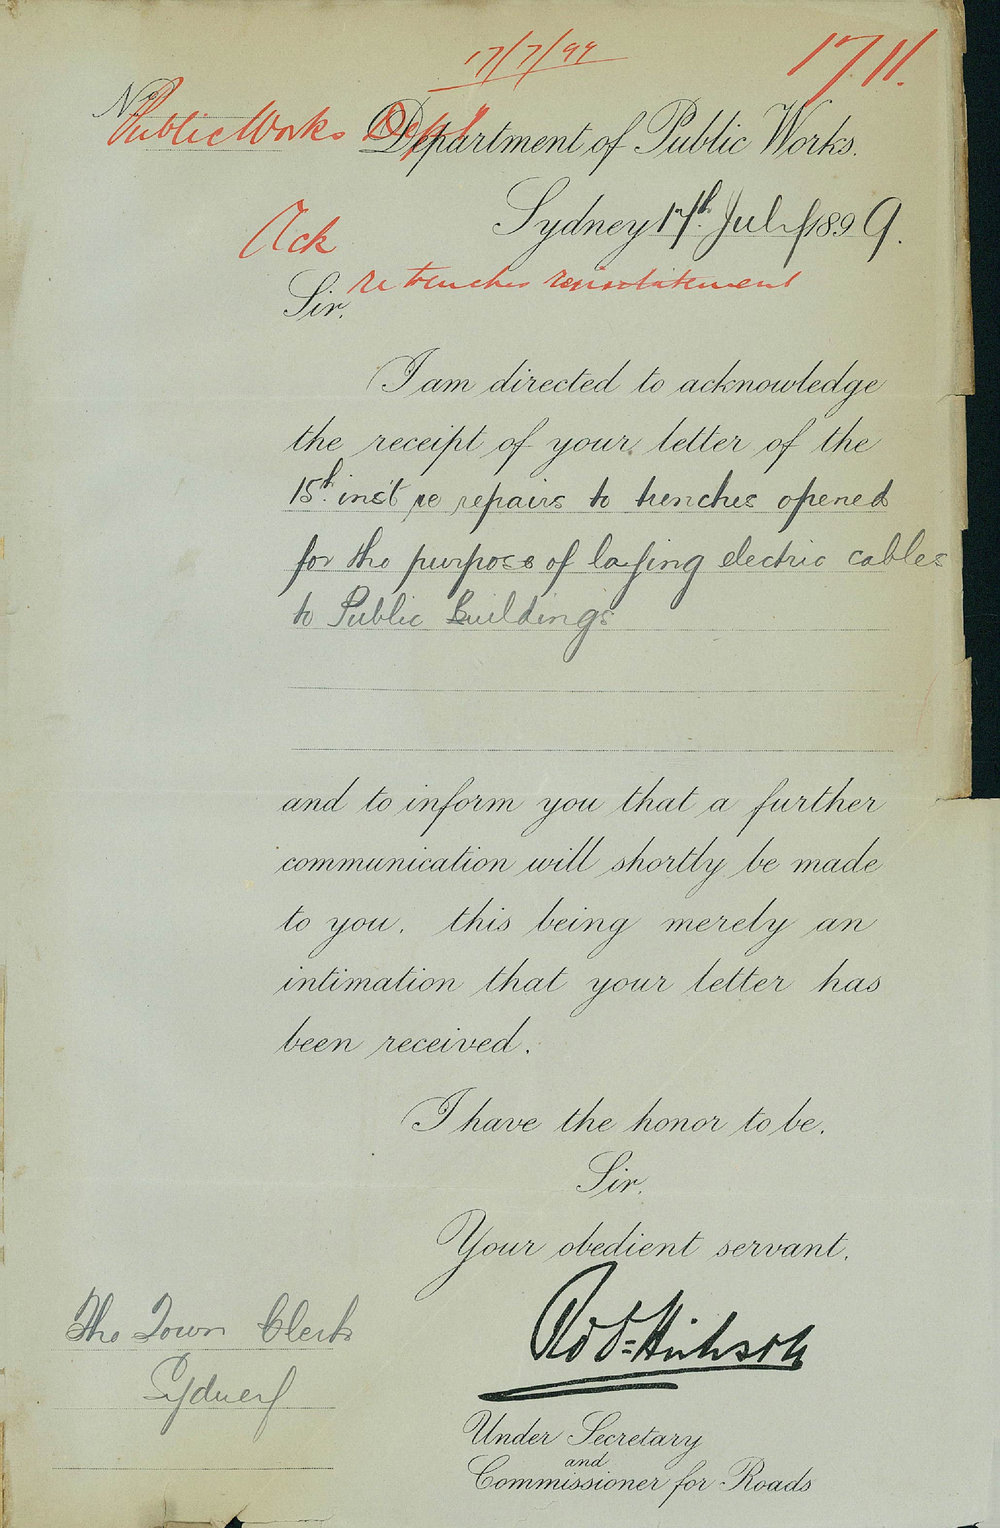 17/7/99
1711.
No
Public Works Dept
Department of Public Works.
Sydney 17th July 1899.
Ack
re trenches reinstatement
Sir,
I am directed to acknowledge
the receipt of your letter of the
15th inst re repairs to trenches opened
for the purpose of laying electric cables
to Public Buildings
and to inform you that a further
communication will shortly be made
to you, this being merely an
intimation that your letter has
been received.
I have the honor to be,
Sir,
Your obedient servant,
The Town Clerk
Sydney
Under Secretary
and
Commissioner for Roads